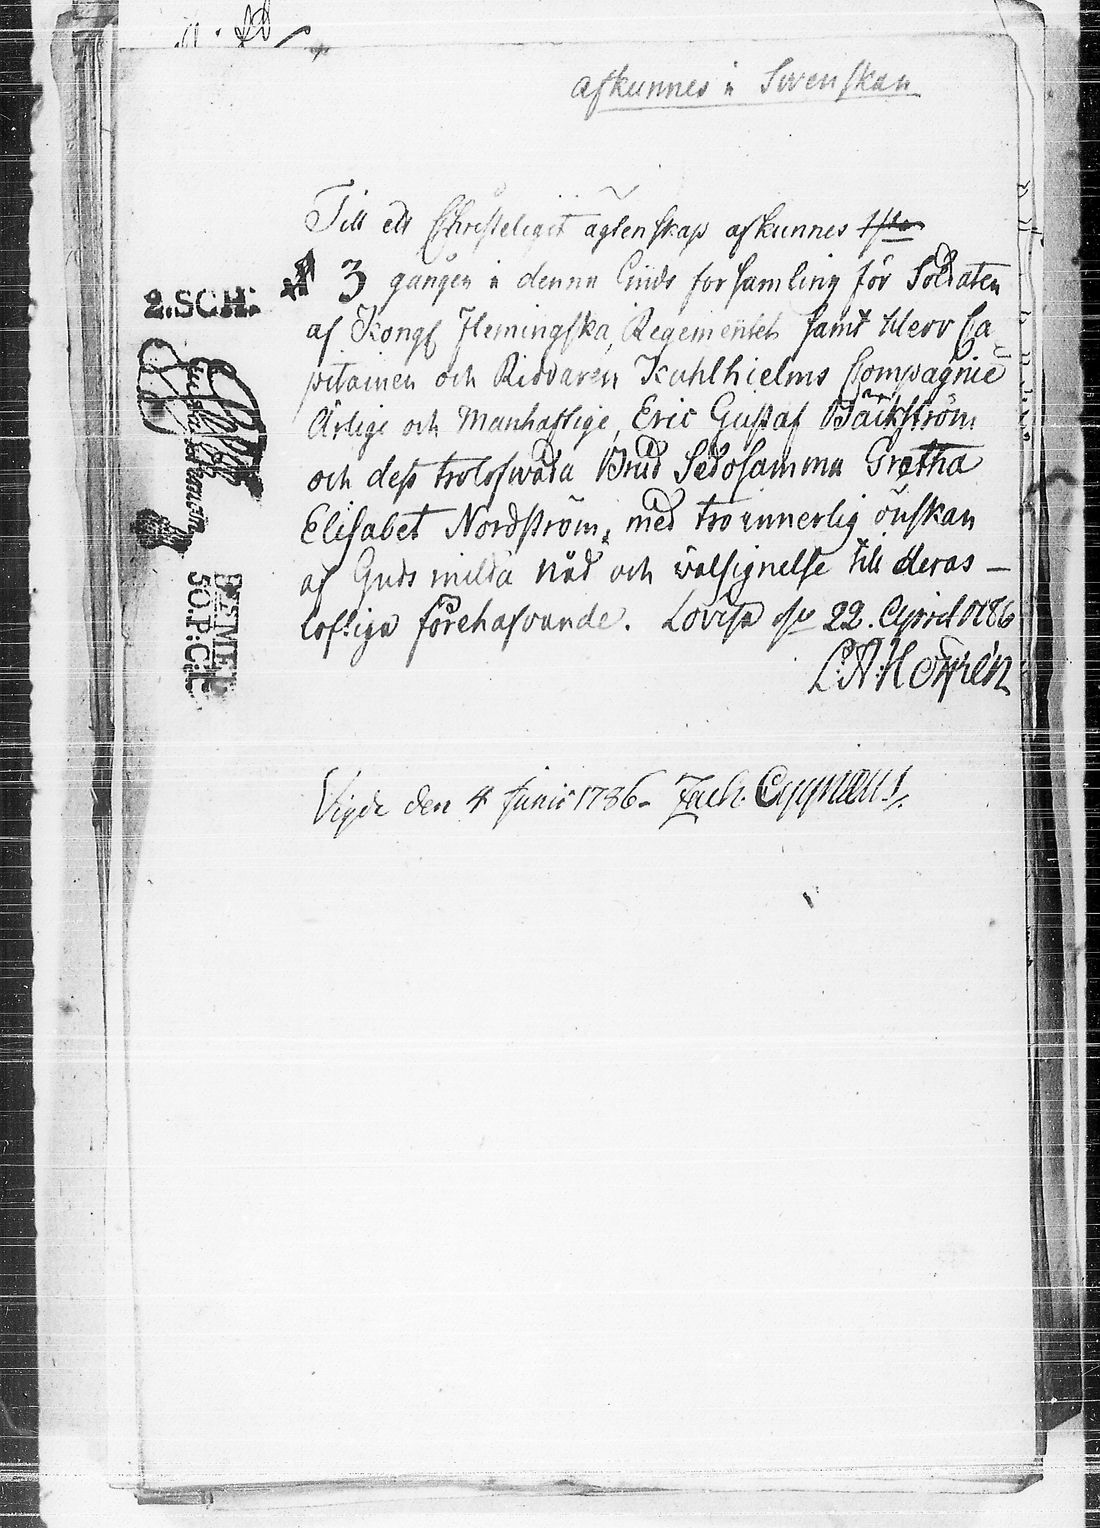 afkunnes i Swenskan
Till ett Christeligit ägtenskap afkunnes 1sta
3 gången i denna Guds forsamling för Soldaten
af Kongl Flemingska Regementet samt Herr Ca
pitainen och Riddaren Kuhlhielms Compagnie
Ärlige och Manhaftige, Eric Gustaf Bäckström
och dess trolofwada Brud Sedosamma Gretha
Elisabet Nordström, med troinnerlig önskan
af Guds milda nåd och välsignelse till deras –
lofliga förehafvande. Lovisa d 22. April 1786
L:A:H
Vigde den 4 Junii 1786 – Zach. Cygnæus
2.SCH:
STEMPEL
50.P:C:T